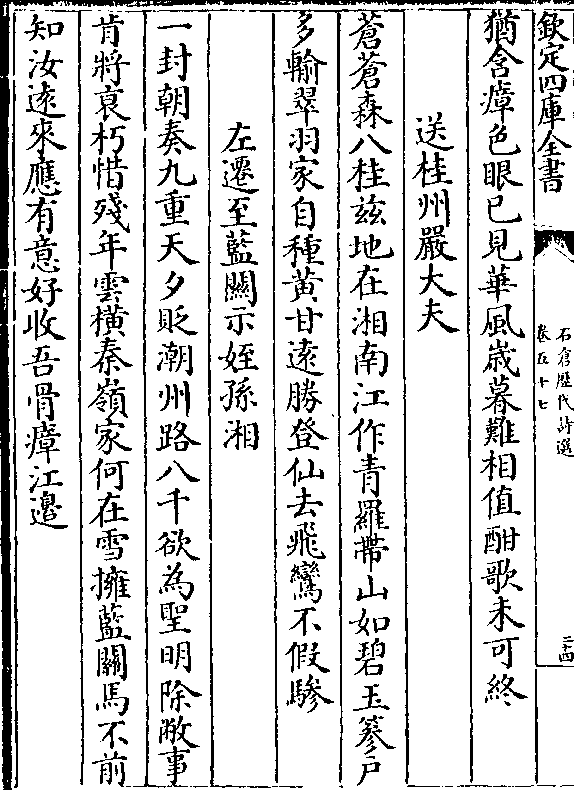 欽定四庫全書
石倉歴代詩選
卷五十七
二十四
猶含瘴色眼已見華風嵗暮難相值酣歌未可終
送桂州嚴大夫
蒼蒼森八桂兹地在湘南江作青羅帶山如碧玉篸户
多輸翠羽家自種黄甘遠勝登仙去飛鸞不假驂
左遷至藍闗示姪孫湘
一封朝奏九重天夕貶潮州路八千欲為聖明除敝事
肯將衰朽惜殘年雲横秦嶺家何在雪擁藍闗馬不前
知汝逺來應有意好收吾骨瘴江邉